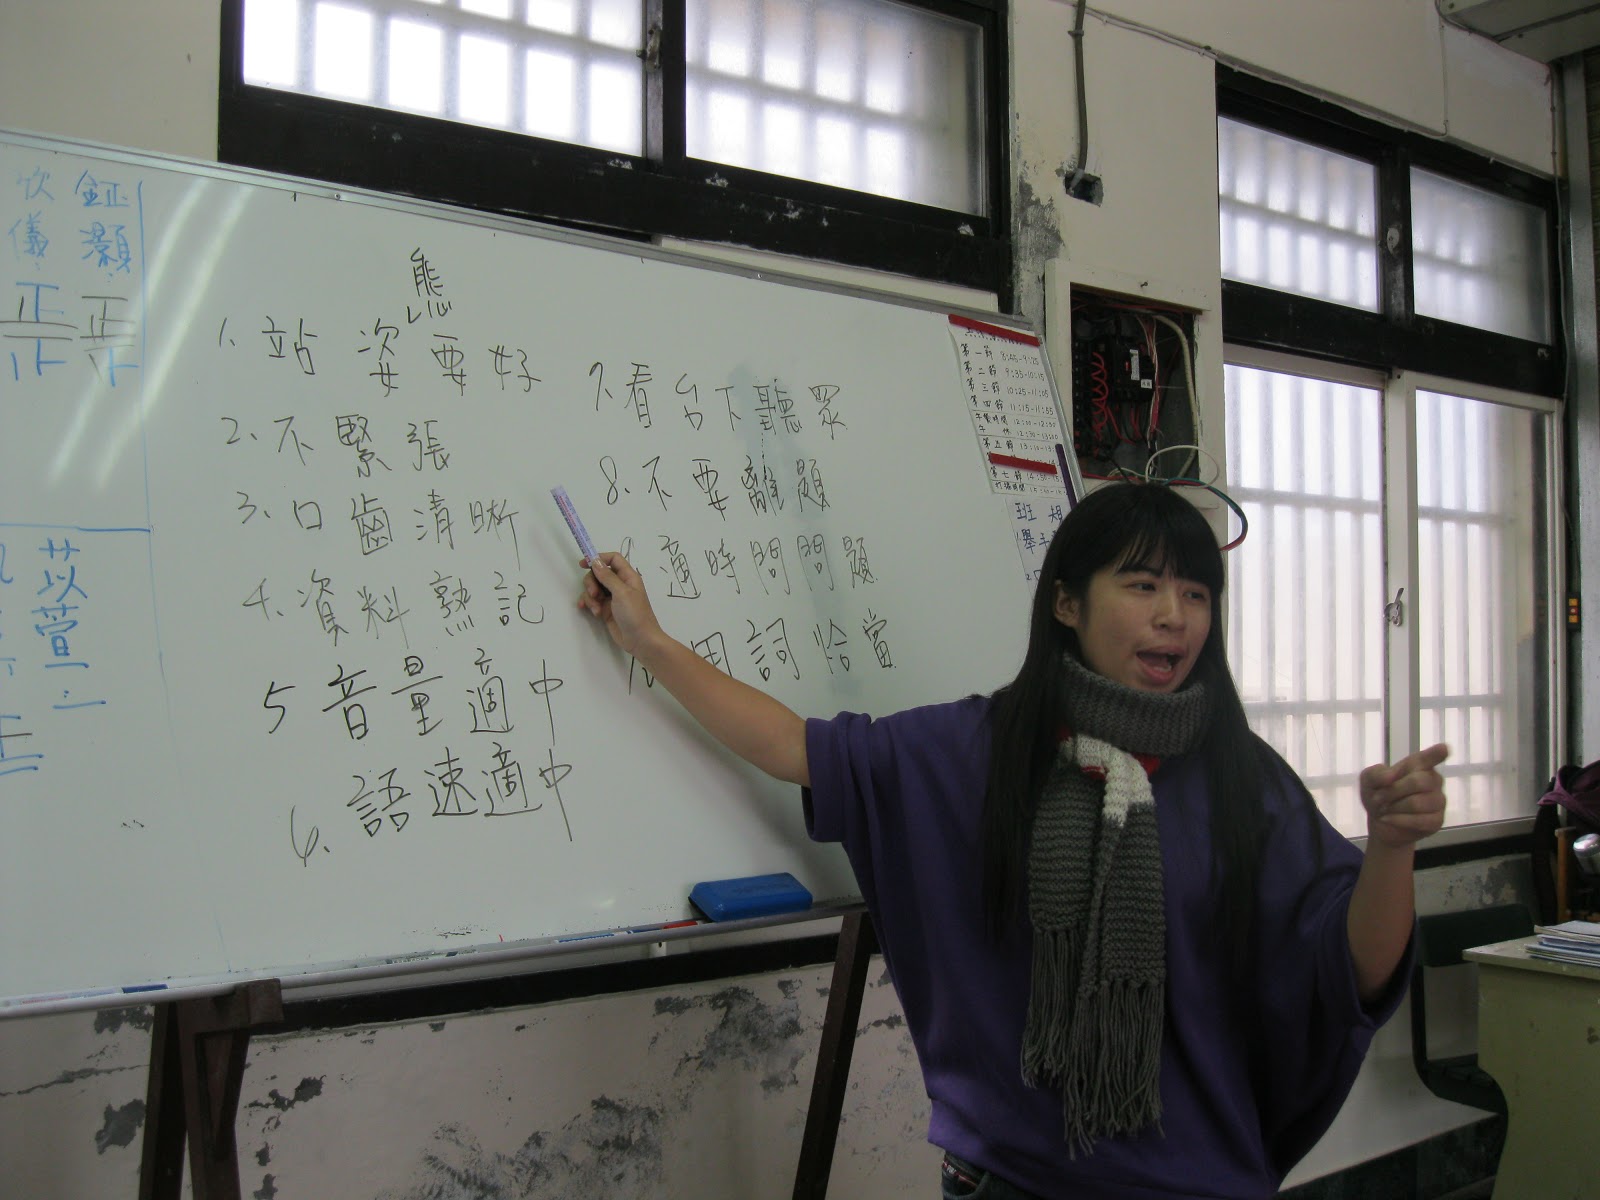 欣儀
鉦灝
正正
正正
苡萱
態
1. 站姿要好
2. 不緊張
3. 口齒清晰
4. 資料熟記
5 音量適中
6. 語速適中
7. 看台下聽眾
8. 不要離題
適時問問題
用詞恰當
第一節 8:45-9:25
第二節 9:35-10:15
第三節 10:25-11:05
第四節 11:15-11:55
午餐時間
第五節
第七節
打掃時間
班規
舉手